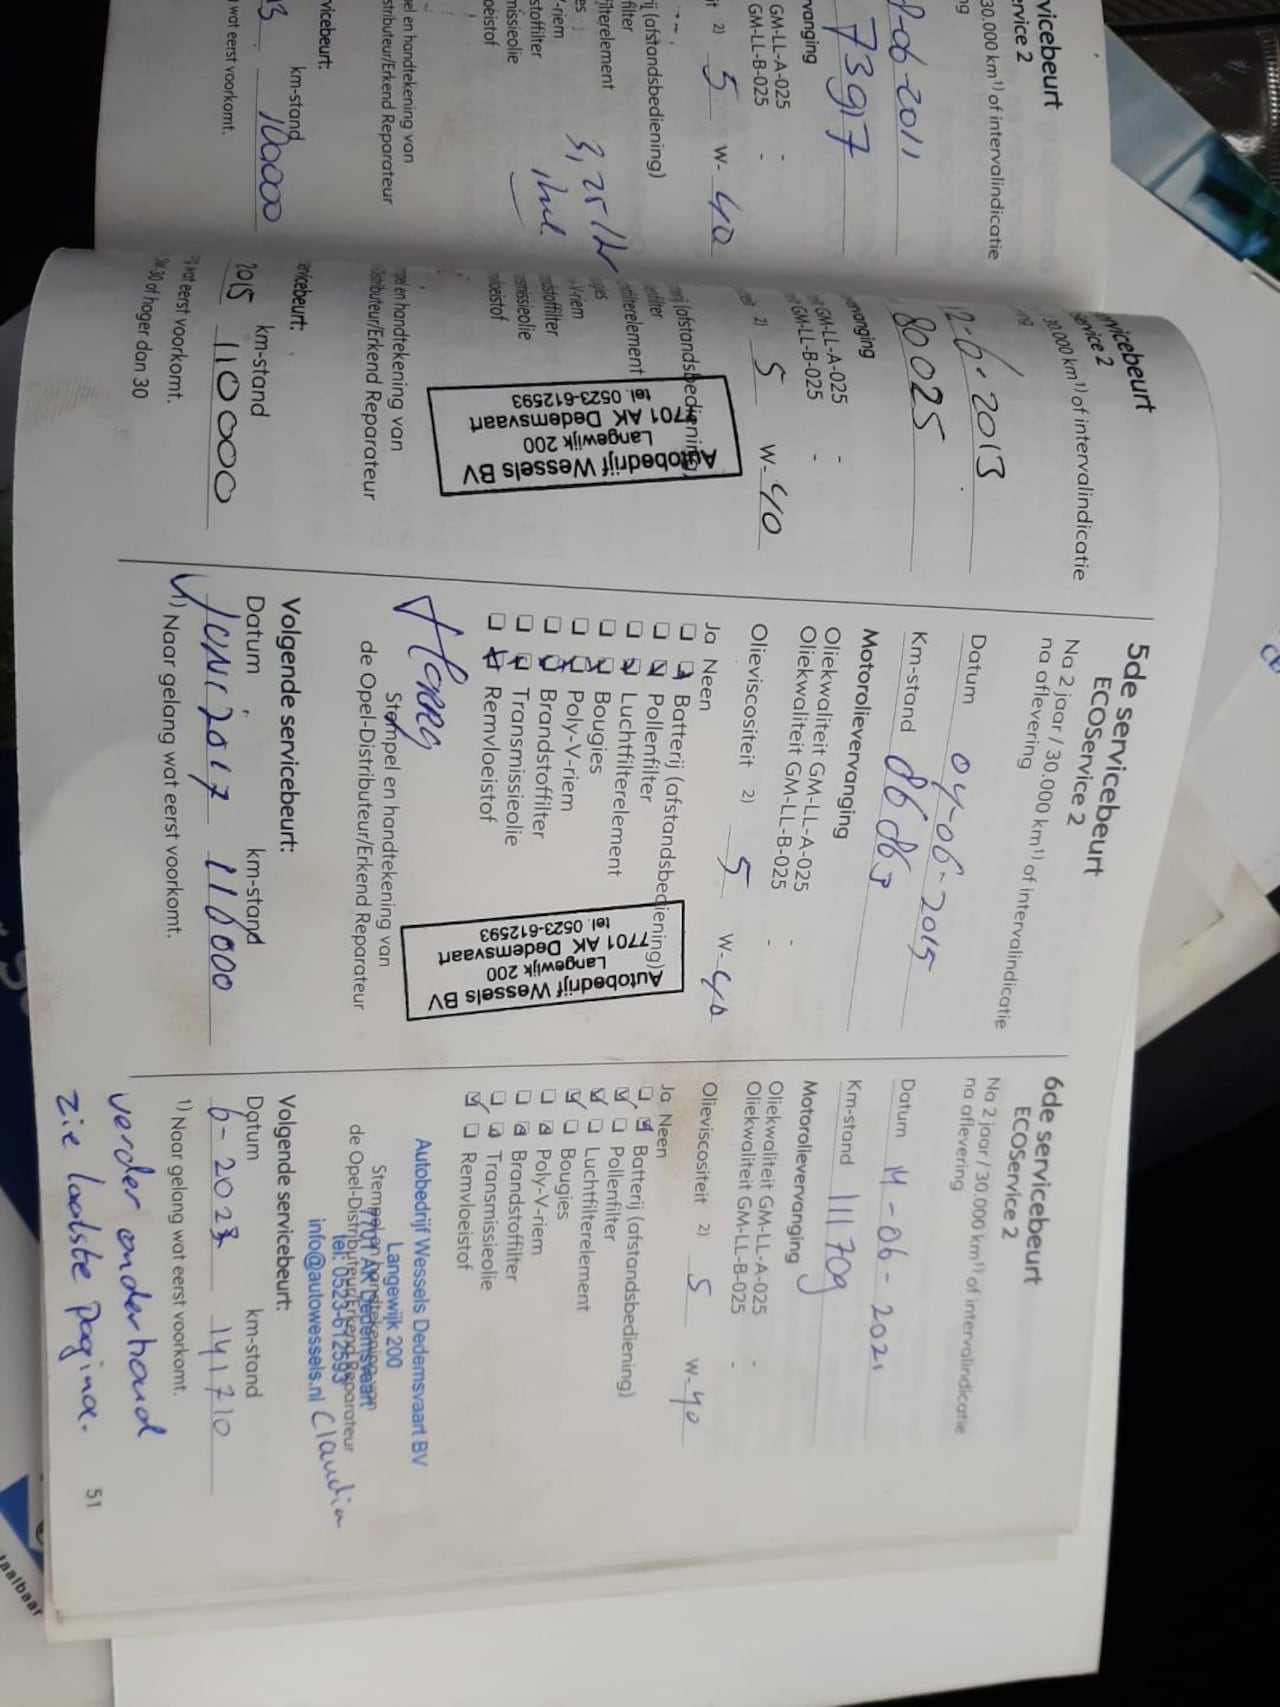 vicebeurt
ervice 2
30.000 km¹⁾ of intervalindicatie
ng
-06-2011
73917
vanging
GM-LL-A-025 -
GM-LL-B-025 -
it 2) 5 W- 40
ij (afstandsbediening)
filter
filterelement
es
-riem
stoffilter
missieolie
oeistof
3,25 ltr
pel en handtekening van
stributeur/Erkend Reparateur
vicebeurt:
km-stand
13 100000
wat eerst voorkomt.
ervicebeurt
Service 2
30.000 km¹⁾ of intervalindicatie
ng
2-6-2013
80025
ervanging
it GM-LL-A-025 -
it GM-LL-B-025 -
teit 2) 5 W- 40
erij (afstandsbediening)
enfilter
filterelement
gies
-V-riem
dstoffilter
smissieolie
vloeistof
Autobedrijf Wessels BV
Langewijk 200
7701 AK Dedemsvaart
tel. 0523-612593
pel en handtekening van
-Distributeur/Erkend Reparateur
ervicebeurt:
km-stand
2015 110000
g wat eerst voorkomt.
5W-30 of hoger dan 30
5de servicebeurt
ECOService 2
Na 2 jaar / 30.000 km¹⁾ of intervalindicatie
na aflevering
Datum 04-06-2015
Km-stand 86863
Motorolievervanging
Oliekwaliteit GM-LL-A-025 -
Oliekwaliteit GM-LL-B-025 -
Olieviscositeit 2) 5 W- 40
Ja Neen
Batterij (afstandsbediening)
Pollenfilter
Luchtfilterelement
Bougies
Poly-V-riem
Brandstoffilter
Transmissieolie
Remvloeistof
Autobedrijf Wessels BV
Langewijk 200
7701 AK Dedemsvaart
tel. 0523-612593
Stempel en handtekening van
de Opel-Distributeur/Erkend Reparateur
Volgende servicebeurt:
Datum km-stand
Juni 2017 116000
1) Naar gelang wat eerst voorkomt.
6de servicebeurt
ECOService 2
Na 2 jaar / 30.000 km¹⁾ of intervalindicatie
na aflevering
Datum 14-06-2021
Km-stand 111709
Motorolievervanging
Oliekwaliteit GM-LL-A-025 -
Oliekwaliteit GM-LL-B-025 -
Olieviscositeit 2) 5 W- 40
Ja Neen
Batterij (afstandsbediening)
Pollenfilter
Luchtfilterelement
Bougies
Poly-V-riem
Brandstoffilter
Transmissieolie
Remvloeistof
Autobedrijf Wessels Dedemsvaart BV
Langewijk 200
7701 AK Dedemsvaart
tel: 0523-612593
info@autowessels.nl
Claudia
Stempel en handtekening van
de Opel-Distributeur/Erkend Reparateur
Volgende servicebeurt:
Datum km-stand
6-2023 141710
1) Naar gelang wat eerst voorkomt.
verder onderhoud
zie laatste pagina.
51
taalbaar